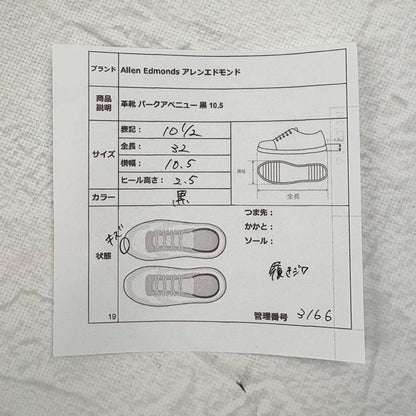 ブランド Allen Edmonds アレンエドモンド
商品説明 革靴 パークアベニュー 黒 10.5
サイズ
表記: 10 1/2
全長: 32
横幅: 10.5
ヒール高さ: 2.5
横幅
全長
カラー 黒
状態
キズ
つま先:
かかと:
ソール:
履きジワ
19
管理番号 3166